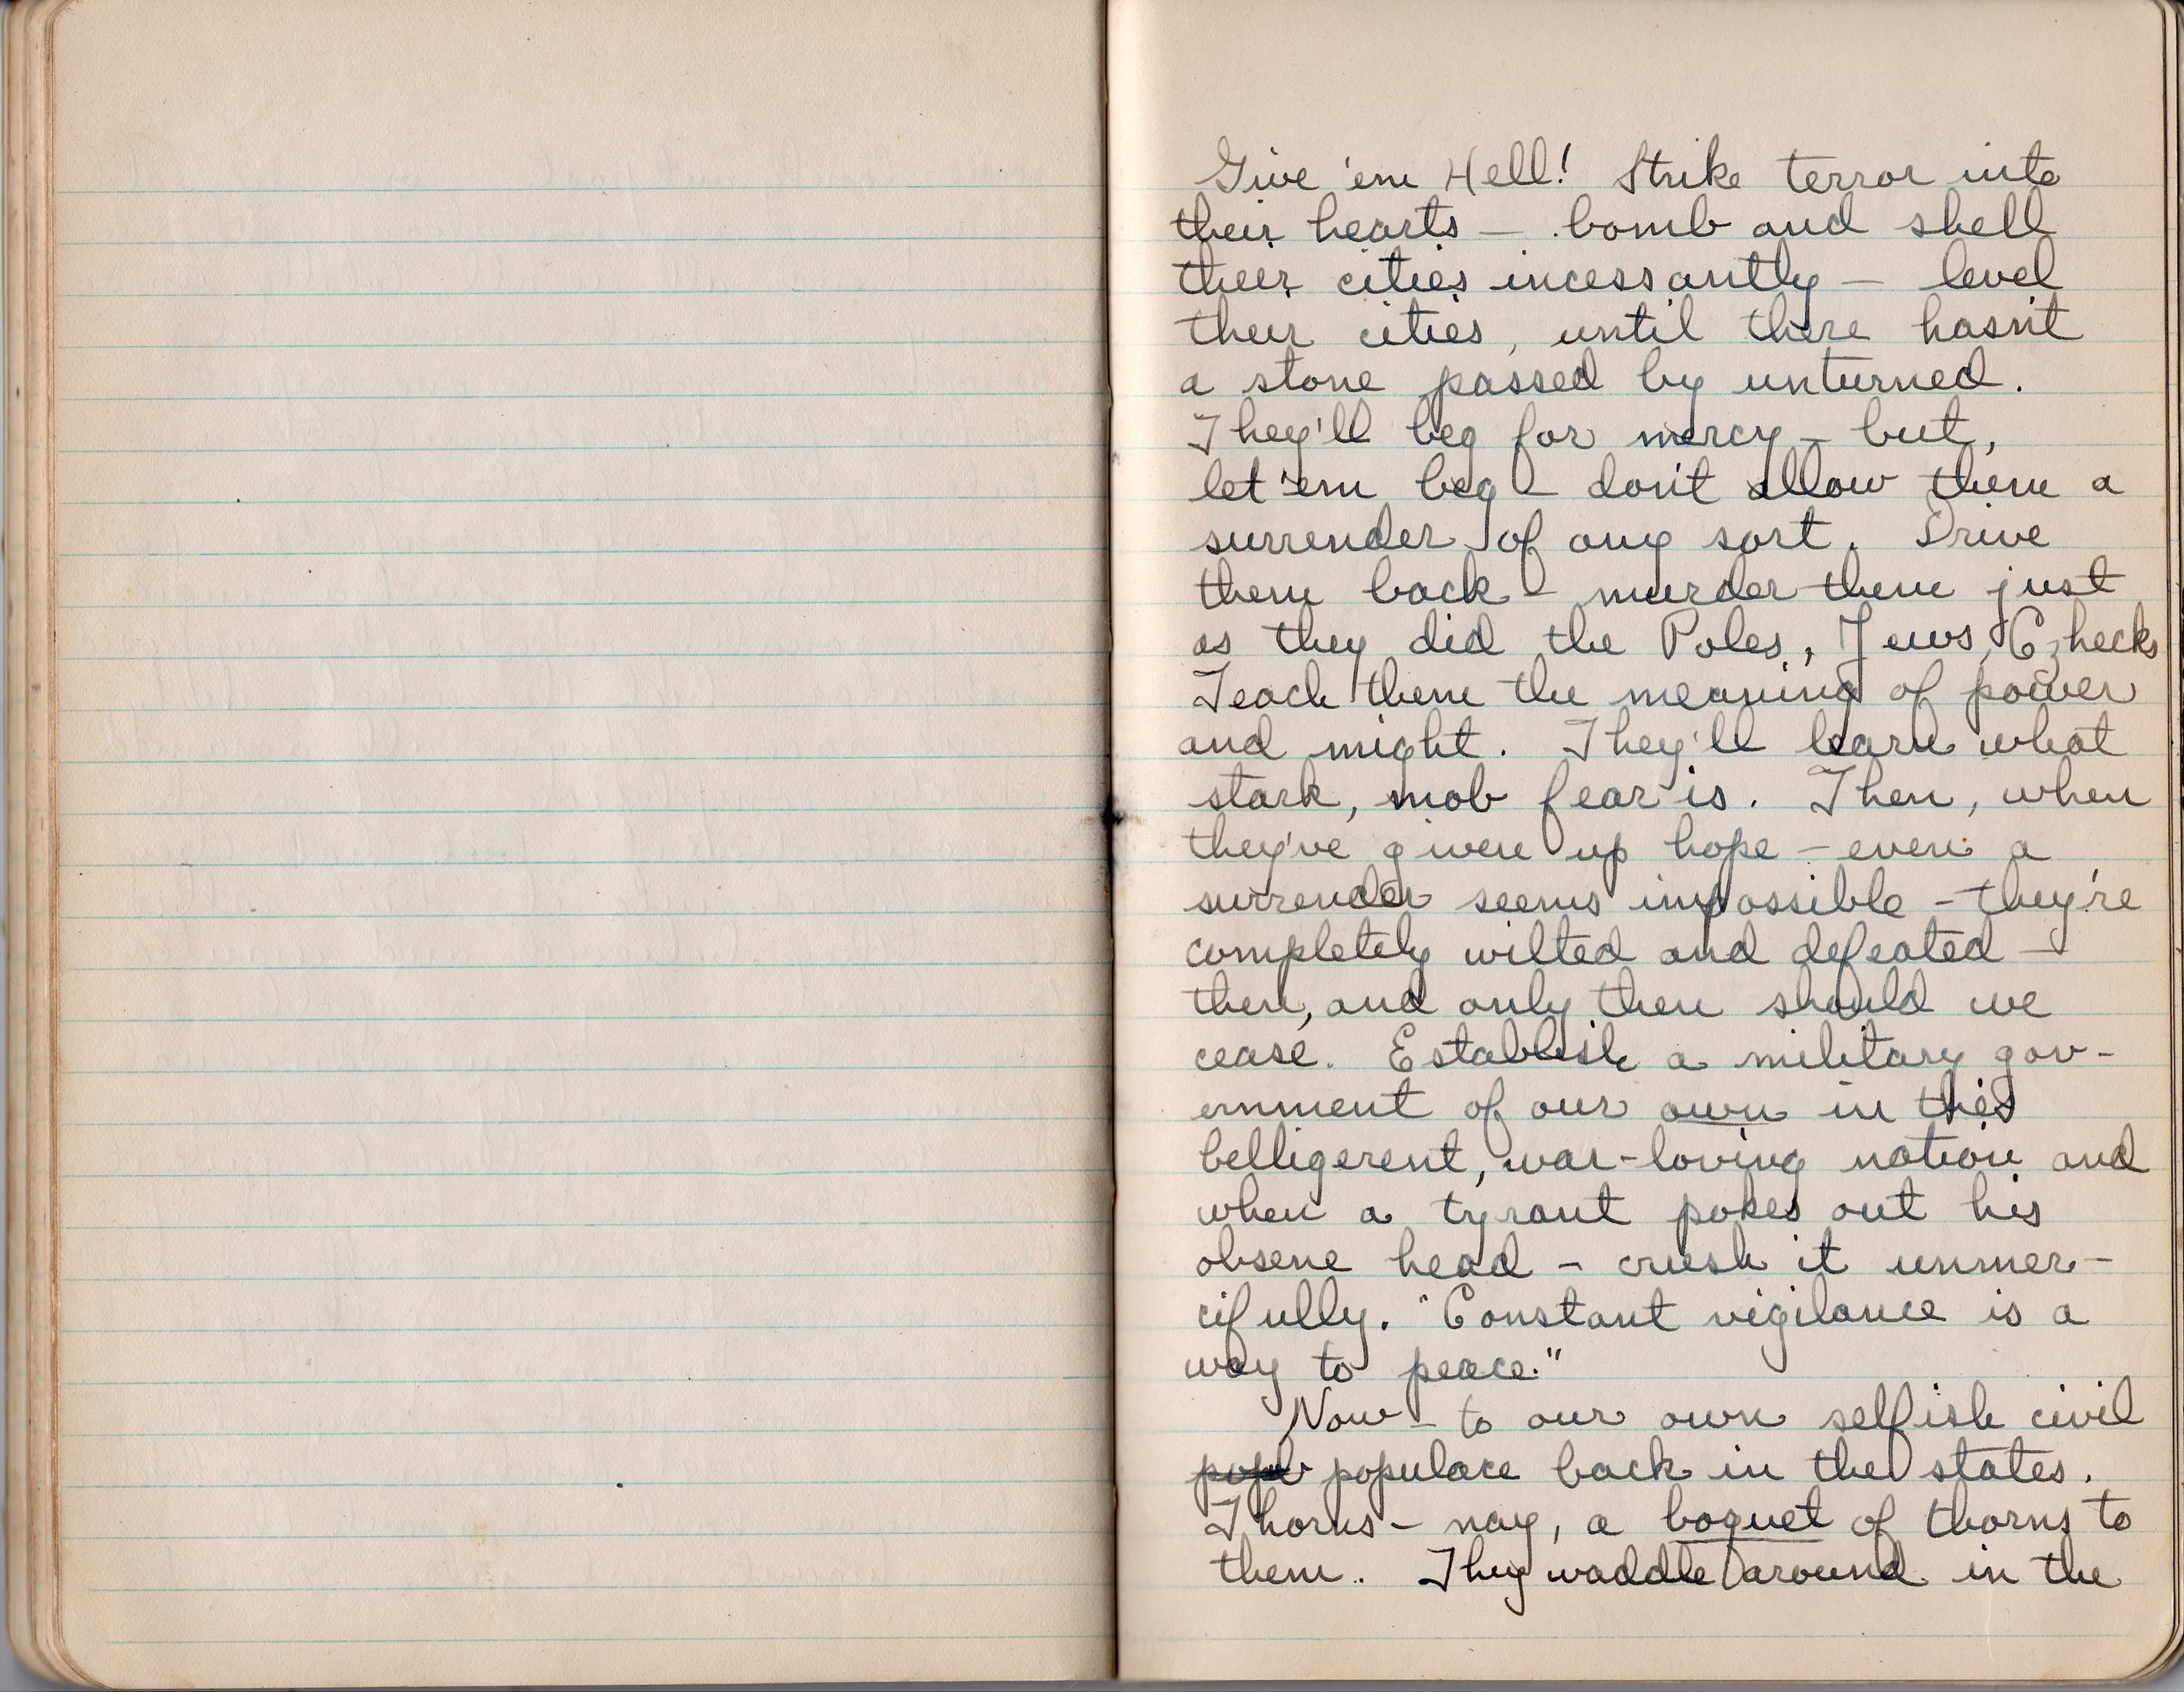 Give 'em Hell! Strike terror into
their hearts — bomb and shell
their cities incessantly — level
their cities, until there hasn't
a stone passed by unturned.
They'll beg for mercy – but,
let 'em beg – don't allow them a
surrender of any sort. Drive
them back – murder them just
as they did the Poles, Jews, Czhecks
Teach them the meaning of power
and might. They'll learn what
stark, mob fear is. Then, when
they've given up hope – even a
surrender seems impossible – they're
completely wilted and defeated —
then, and only then should we
cease. Establish a military gov-
ernment of our own in this
belligerent, war-loving nation and
when a tyrant pokes out his
obsene head – crush it unmer-
cifully. "Constant vigilance is a
way to peace."
Now – to our own selfish civil
populace back in the states.
Thorns – nay, a boquet of thorns to
them. They waddle around in the